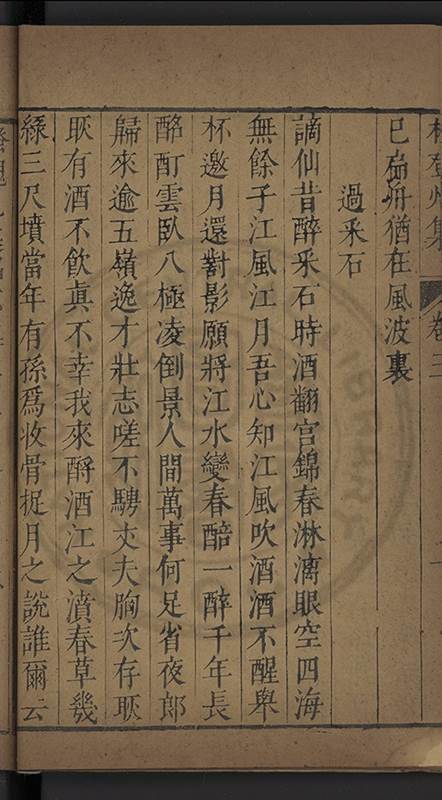 林登州集 卷二
已扁舟猶在風波裏
過采石
謫仙昔醉采石時酒翻宮錦春淋漓眼空四海
無餘子江風江月吾心知江風吹酒酒不醒舉
杯邀月還對影願將江水變春醅一醉千年長
酩酊雲臥八極凌倒景人間萬事何足省夜郎
歸來逾五嶺逸才壯志嗟不騁丈夫胸次存耿
耿有酒不飲眞不幸我來酹酒江之濆春草幾
綠三尺墳當年有孫爲收骨捉月之說誰爾云